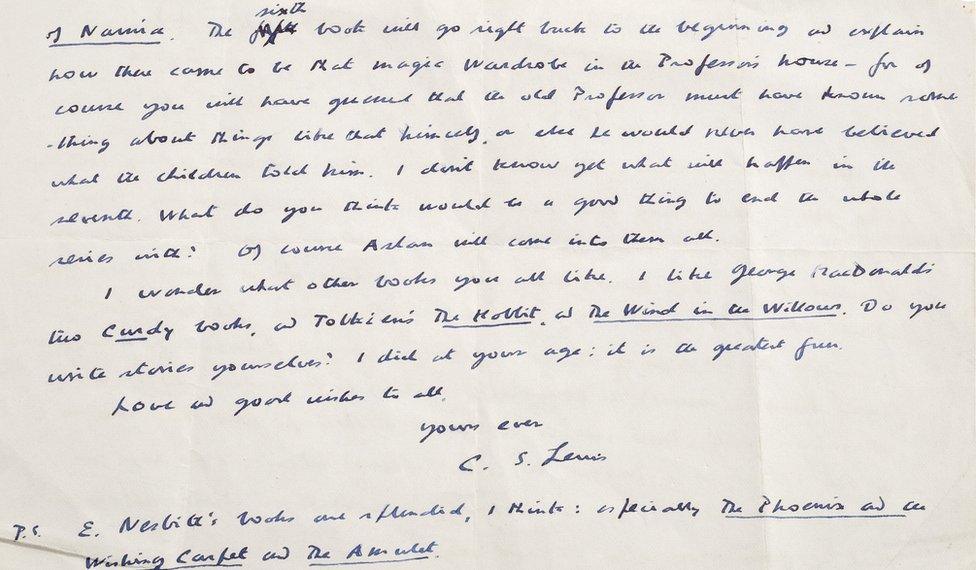 of Narnia. The sixth book will go right back to the beginning and explain
how there came to be that magic Wardrobe in the Professor's house – for of
course you will have guessed that the old Professor must have known some
-thing about things like that himself, or else he would never have believed
what the children told him. I don't know yet what will happen in the
seventh. What do you think would be a good thing to end the whole
series with? Of course Aslan will come into them all.
I wonder what other books you all like. I like George MacDonald's
two Curdy books, and Tolkien's The Hobbit, and The Wind in the Willows. Do you
write stories yourselves? I did at your age: it is the greatest fun.
Love and good wishes to all.
yours ever
C. S. Lewis
P.S. E. Nesbitt's books are splendid, I think: especially The Phoenix and the
Wishing Carpet and The Amulet.